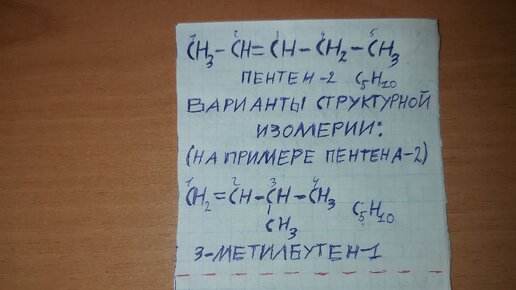 1 2 3 4 5
CH₃-CH=CH-CH₂-CH₃
ПЕНТЕН-2 C₅H₁₀
ВАРИАНТЫ СТРУКТУРНОЙ
ИЗОМЕРИИ:
(НА ПРИМЕРЕ ПЕНТЕНА-2)
1 2 3 4
CH₂=CH-CH-CH₃ C₅H₁₀
CH₃
3-МЕТИЛБУТЕН-1